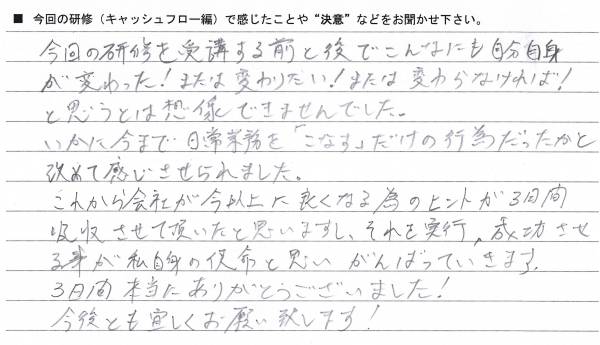 ■ 今回の研修（キャッシュフロー編）で感じたことや“決意”などをお聞かせ下さい。
今回の研修を受講する前と後でこんなにも自分自身
が変わった！または変わりたい！または変わらなければ！
と思うとは想像できませんでした。
いかに今まで日常業務を「こなす」だけの行為だったかと
改めて感じさせられました。
これから会社が今以上に良くなる為のヒントが3日間
吸収させて頂いたと思いますし、それを実行、成功させ
る事が私自身の使命と思いがんばっていきます。
3日間本当にありがとうございました！
今後とも宜しくお願い致します！